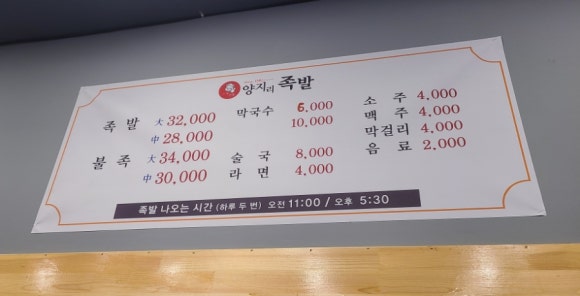 양지리 족발
족 발 大 32,000
中 28,000
불 족 大 34,000
中 30,000
막국수 6,000
10,000
술 국 8,000
라 면 4,000
소 주 4,000
맥 주 4,000
막걸리 4,000
음 료 2,000
족발 나오는 시간 (하루 두 번) 오전 11:00 / 오후 5:30